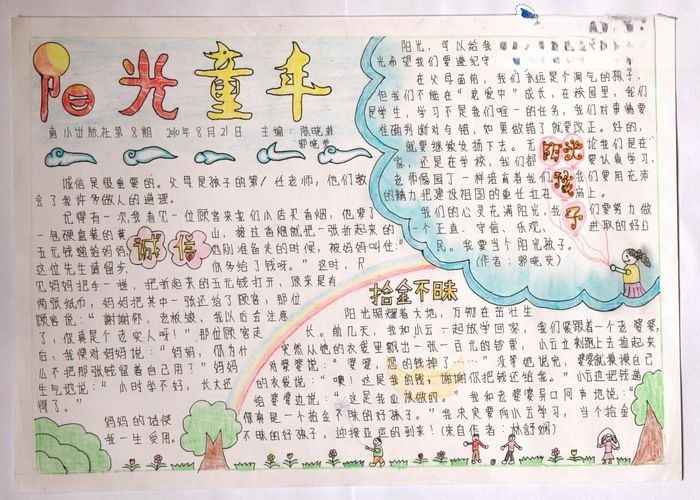 阳光童年
南小出版社第8期 2010年8月21日 主编:陈晓弟
郭晓英
诚信是很重要的。父母是孩子的第1任老师,他们教
会了我许多做人的道理。
记得有一次,我看见一位顾客来我们小店买香烟,他要了
一包硬盒装的黄山,接过香烟就把一张折起来的
五元钱递给妈妈
准备走的时候,被妈妈叫住:“
这位先生请留步,你多给了钱呀。”这时,只
见妈妈把手一搓,把折起来的五元钱打开,原来是有
两张纸币,妈妈把其中一张还给了顾客,那位
顾客说:“谢谢你,老板娘,我以后会注意
了,你真是个老实人呀!”那位顾客走
后,我便对妈妈说:“妈妈,你为什
么不把那张钱留着自己用?”妈妈
生气地说:“小时学不好,长大还
得了。”
妈妈的话使
我一生受用。
诚信
阳光,可以给我
光希望我们要遵纪守
在父母面前,我们永远是个淘气的孩子,
但我们不能在“氧爱中”成长,在校园里,我们
是学生,学习不是我们唯一的任务,我们对事情要
准确判断对与错,如果做错了就要改正。好的,
就要继续发扬下去。无论我们是在
家,还是在学校,我们都要认真学习,
老师像园丁一样培育着我们,我们要用充沛
的精力把建设祖国的重任扛在肩上。
我们的心灵充满阳光,我们要努力做
一个正直、守信、乐观、进取的好公
民。我要当个阳光孩子。
(作者:郭晓英)
阳光
孩
子
拾金不昧
阳光照耀着大地,万物在茁壮生
长。前几天,我和小云一起放学回家,我们紧跟着一个老婆婆,
突然从她的衣袋里飘出一张一百元的钞票,小云立刻跑上去捡起来
对婆婆说:“婆婆,您的钱掉了……”没等她说完,婆婆就摸摸自己
的衣袋说:“噢!这是我的钱,谢谢你把钱还给我。”小云边把钱递
给婆婆边说:“这是我应该做的。”我和老婆婆异口同声地说:“
你真是一个拾金不昧的好孩子。”我决定要向小云学习,当个拾金
不昧的好孩子,迎接亚运的到来!(来自作者:林舒娴)